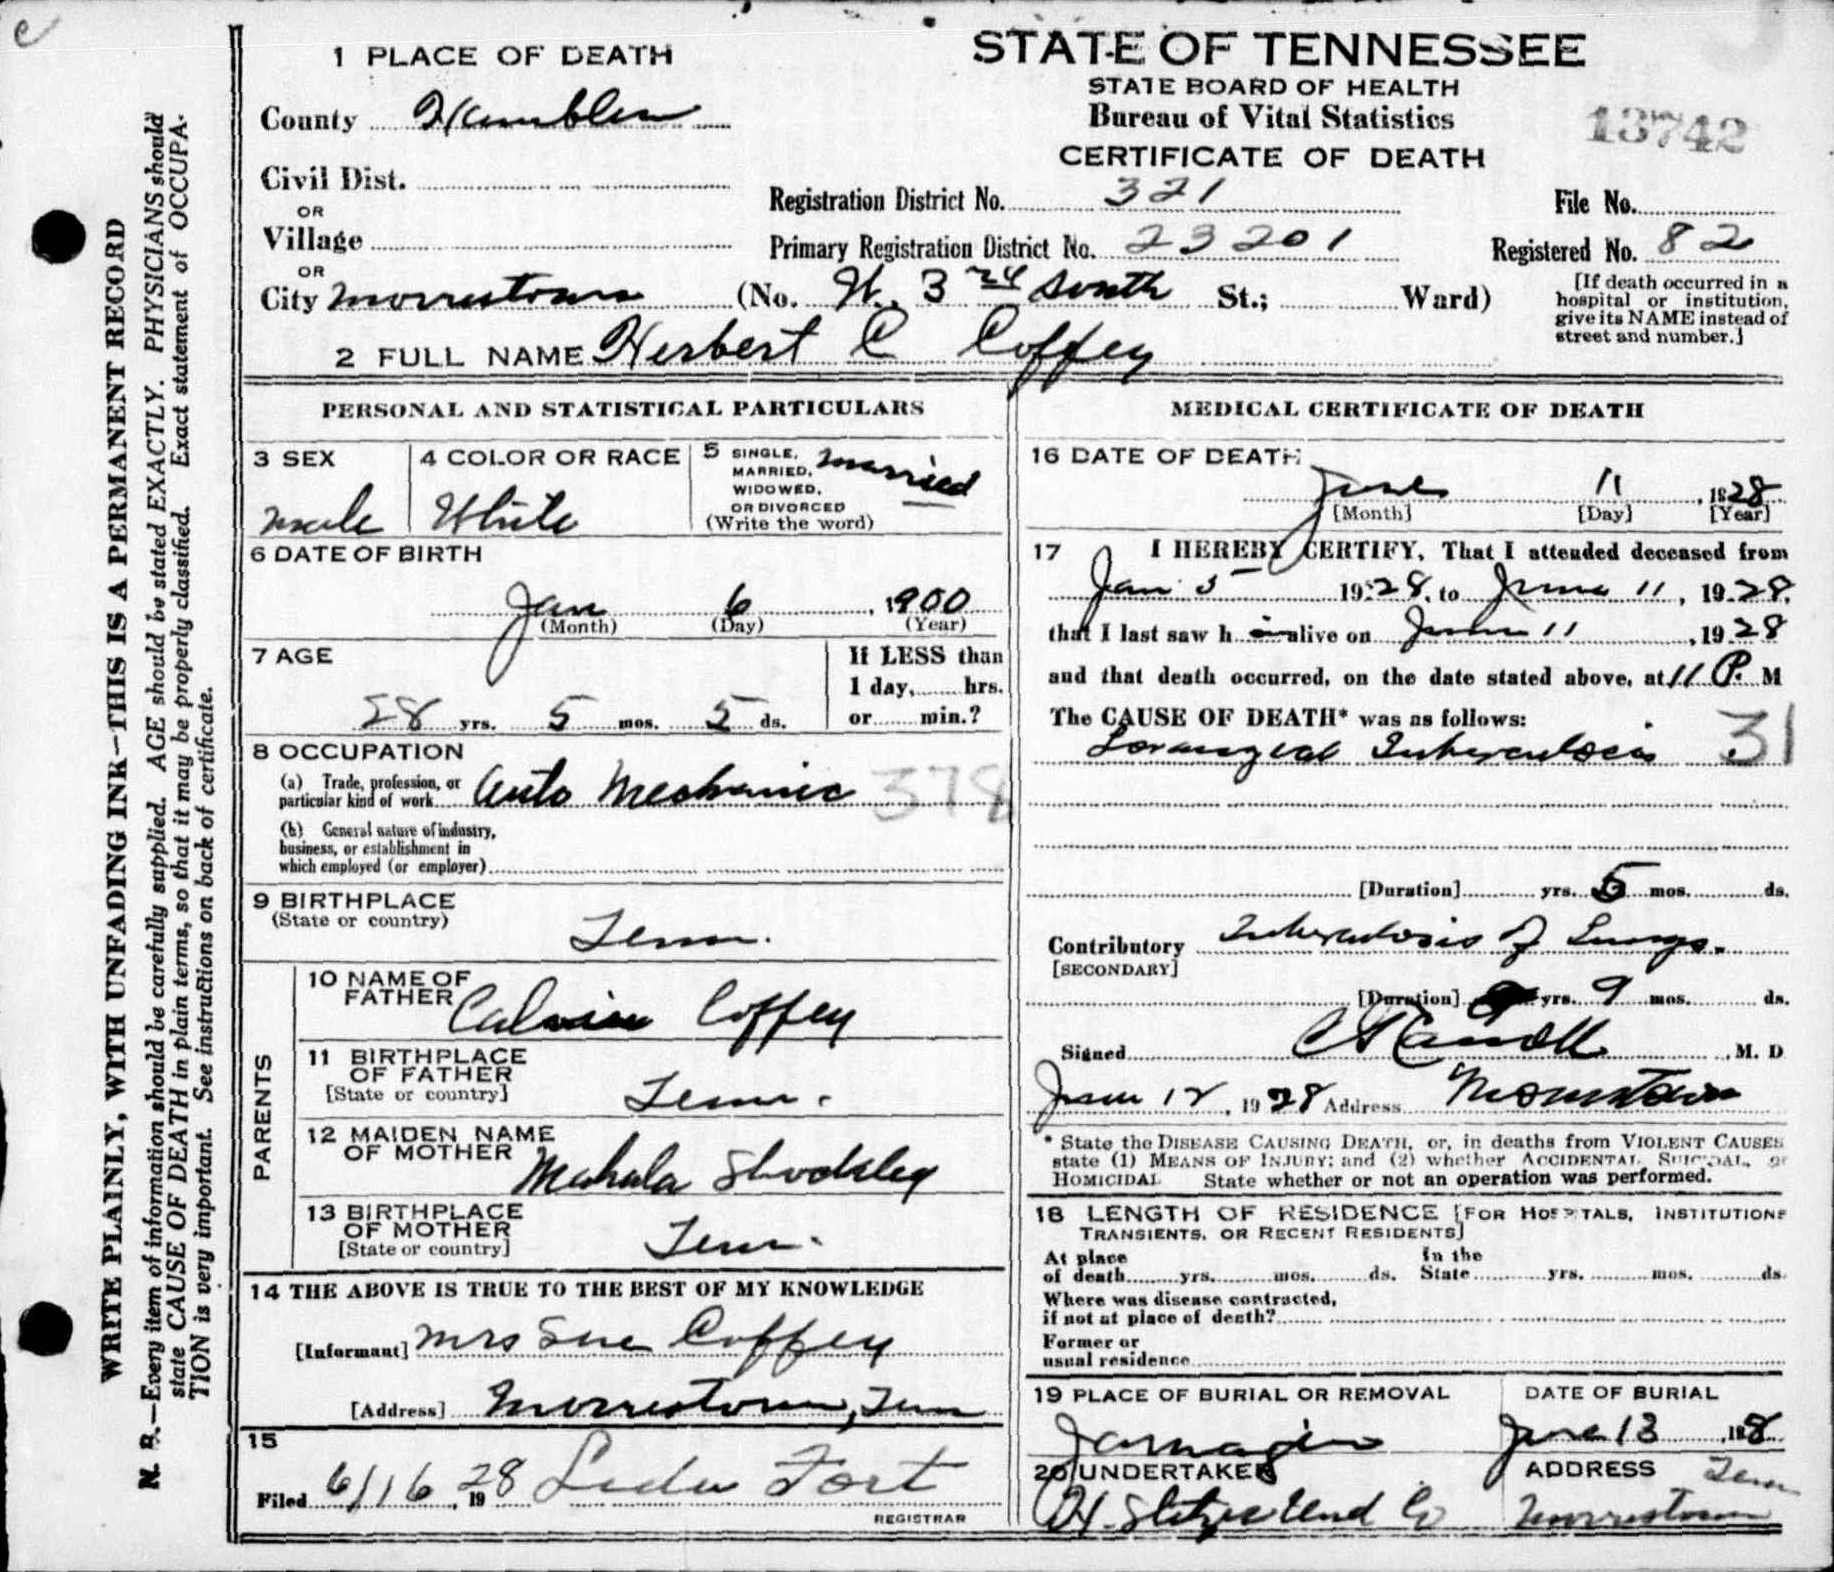 c
1 PLACE OF DEATH
County Hamblen
Civil Dist.
OR
Village
OR
City Morristown (No. W. 3rd South St.; Ward)
2 FULL NAME Herbert C Coffey
STATE OF TENNESSEE
STATE BOARD OF HEALTH
Bureau of Vital Statistics
CERTIFICATE OF DEATH
13742
Registration District No. 321 File No.
Primary Registration District No. 23201 Registered No. 82
[If death occurred in a
hospital or institution,
give its NAME instead of
street and number.]
WRITE PLAINLY, WITH UNFADING INK—THIS IS A PERMANENT RECORD
N. B.—Every item of information should be carefully supplied. AGE should be stated EXACTLY. PHYSICIANS should
state CAUSE OF DEATH in plain terms, so that it may be properly classified. Exact statement of OCCUPA-
TION is very important. See instructions on back of certificate.
PERSONAL AND STATISTICAL PARTICULARS
3 SEX
male
4 COLOR OR RACE
White
5 SINGLE,
MARRIED,
WIDOWED,
OR DIVORCED
(Write the word)
married
6 DATE OF BIRTH
Jan 6, 1900
(Month) (Day) (Year)
7 AGE
28 yrs. 5 mos. 5 ds.
If LESS than
1 day, hrs.
or min.?
8 OCCUPATION
(a) Trade, profession, or
particular kind of work Auto Mechanic 378
(b) General nature of industry,
business, or establishment in
which employed (or employer)
9 BIRTHPLACE
(State or country) Tenn.
PARENTS
10 NAME OF
FATHER Calvin Coffey
11 BIRTHPLACE
OF FATHER
[State or country] Tenn.
12 MAIDEN NAME
OF MOTHER Mahala Shockley
13 BIRTHPLACE
OF MOTHER
[State or country] Tenn.
14 THE ABOVE IS TRUE TO THE BEST OF MY KNOWLEDGE
[Informant] Mrs Sue Coffey
[Address] Morristown, Tenn
15
Filed 6/16, 1928 Fort
REGISTRAR
MEDICAL CERTIFICATE OF DEATH
16 DATE OF DEATH
June 11, 1928
[Month] [Day] [Year]
17 I HEREBY CERTIFY, That I attended deceased from
Jan 5 1928, to June 11, 1928,
that I last saw h im alive on June 11, 1928
and that death occurred, on the date stated above, at 11 P. M
The CAUSE OF DEATH* was as follows:
Laryngeal Tuberculosis 31
[Duration] yrs. 5 mos. ds.
Contributory Tuberculosis of Lungs.
[SECONDARY]
[Duration] yrs. 9 mos. ds.
Signed Carroll, M. D
June 12, 1928 Address Morristown
* State the DISEASE CAUSING DEATH, or, in deaths from VIOLENT CAUSES
state (1) MEANS OF INJURY; and (2) whether ACCIDENTAL, SUICIDAL, or
HOMICIDAL State whether or not an operation was performed.
18 LENGTH OF RESIDENCE [FOR HOSPITALS, INSTITUTIONS
TRANSIENTS, OR RECENT RESIDENTS]
At place In the
of death yrs. mos. ds. State yrs. mos. ds.
Where was disease contracted,
if not at place of death?
Former or
usual residence
19 PLACE OF BURIAL OR REMOVAL
Jarnagin
DATE OF BURIAL
June 13, 1928
20 UNDERTAKER
Und Co
ADDRESS Tenn
Morristown